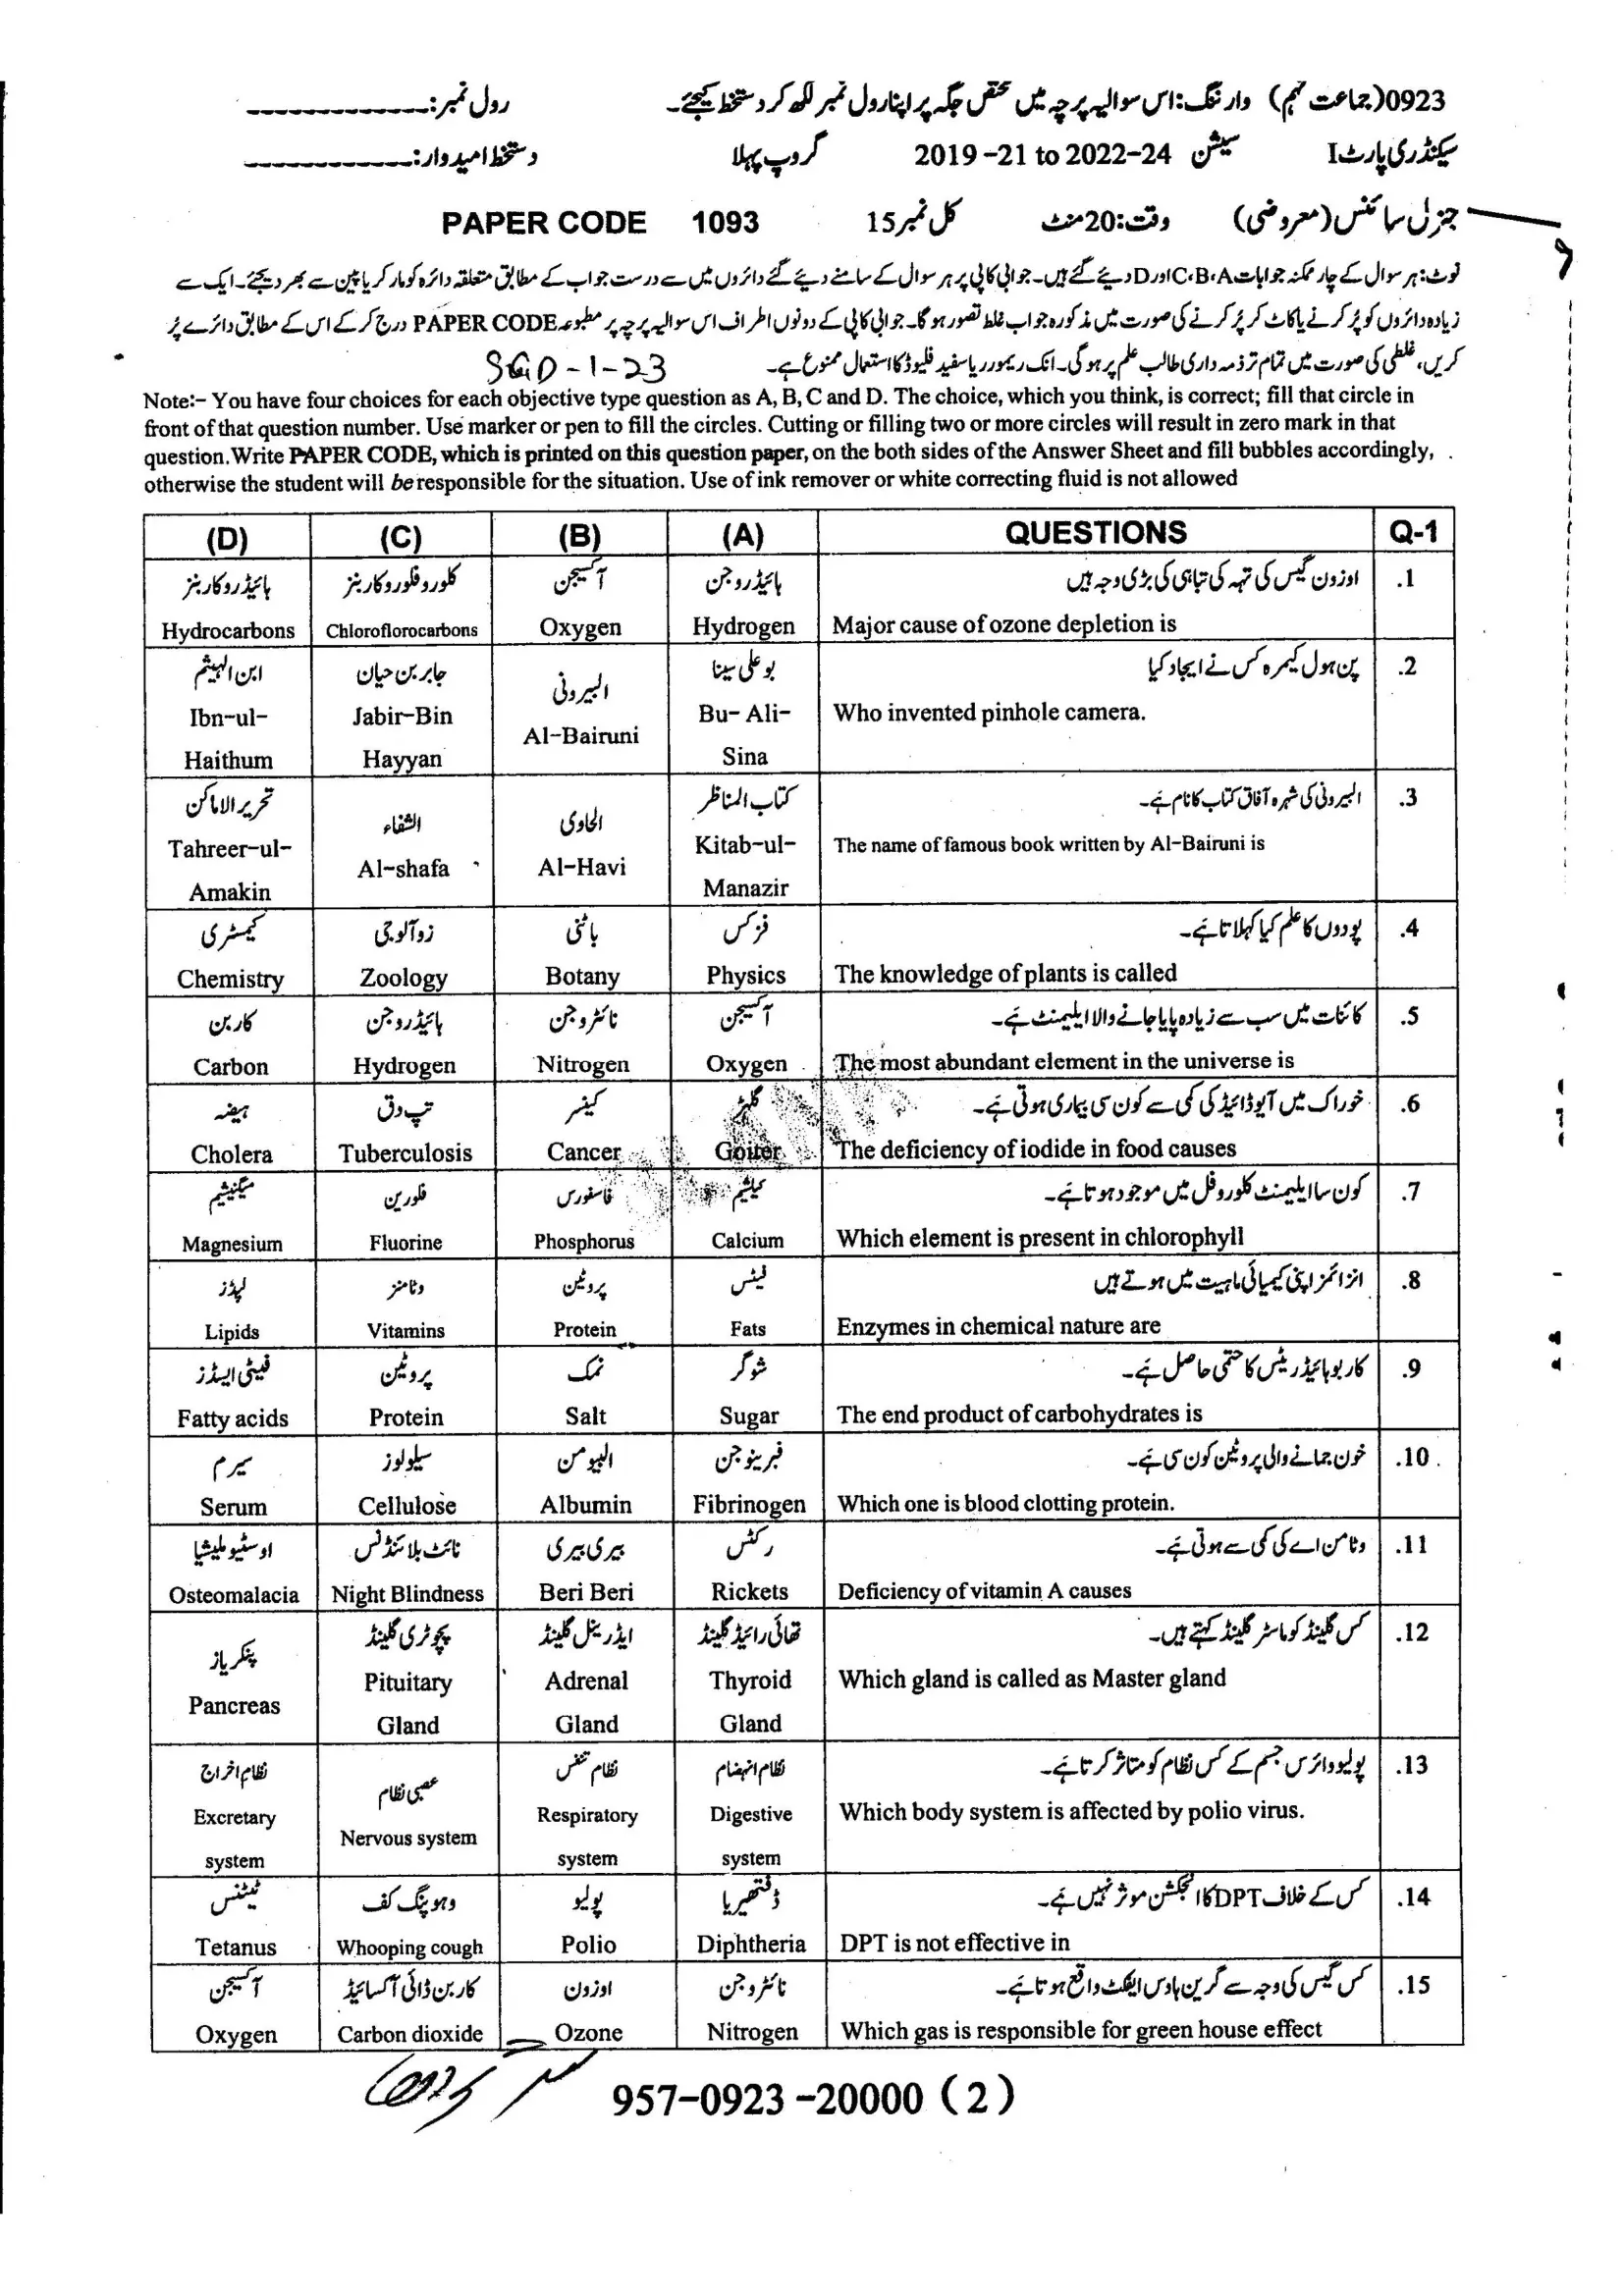 0923(جماعت نہم) وارننگ: اس سوالیہ پرچہ میں مختص جگہ پر اپنا رول نمبر لکھ کر دستخط کیجئے۔ رول نمبر:
سیکنڈری پارٹ I سیشن 2019-21 to 2022-24 گروپ پہلا دستخط امیدوار:
جنرل سائنس (معروضی) وقت:20منٹ کل نمبر15 PAPER CODE 1093
نوٹ: ہر سوال کے چار ممکنہ جوابات C،B،A اور D دیئے گئے ہیں۔ جوابی کاپی پر ہر سوال کے سامنے دیئے گئے دائروں میں سے درست جواب کے مطابق متعلقہ دائرہ کو مارکر یا پین سے بھر دیجئے۔ ایک سے
زیادہ دائروں کو پُر کرنے یا کاٹ کر پُر کرنے کی صورت میں مذکورہ جواب غلط تصور ہوگا۔ جوابی کاپی کے دونوں اطراف اس سوالیہ پرچہ پر مطبوعہ PAPER CODE درج کر کے اس کے مطابق دائرے پُر
کریں، غلطی کی صورت میں تمام تر ذمہ داری طالب علم پر ہوگی۔ انک ریمور یا سفید فلیوڈ کا استعمال ممنوع ہے۔ SGD-1-23
Note:- You have four choices for each objective type question as A, B, C and D. The choice, which you think, is correct; fill that circle in
front of that question number. Use marker or pen to fill the circles. Cutting or filling two or more circles will result in zero mark in that
question.Write PAPER CODE, which is printed on this question paper, on the both sides of the Answer Sheet and fill bubbles accordingly,
otherwise the student will be responsible for the situation. Use of ink remover or white correcting fluid is not allowed
(D) (C) (B) (A) QUESTIONS Q-1
ہائیڈروکاربنز کلوروفلوروکاربنز آکسیجن ہائیڈروجن اوزون گیس کی تہہ کی تباہی کی بڑی وجہ ہیں .1
Hydrocarbons Chloroflorocarbons Oxygen Hydrogen Major cause of ozone depletion is
ابن الہیثم جابر بن حیان البیرونی بو علی سینا پن ہول کیمرہ کس نے ایجاد کیا .2
Ibn-ul- Jabir-Bin Al-Bairuni Bu- Ali- Who invented pinhole camera.
Haithum Hayyan Sina
تحریر الاماکن الشفاء الحاوی کتاب المناظر البیرونی کی شہرہ آفاق کتاب کا نام ہے۔ .3
Tahreer-ul- Al-shafa Al-Havi Kitab-ul- The name of famous book written by Al-Bairuni is
Amakin Manazir
کیمسٹری زوآلوجی باٹنی فزکس پودوں کا علم کیا کہلاتا ہے۔ .4
Chemistry Zoology Botany Physics The knowledge of plants is called
کاربن ہائیڈروجن نائٹروجن آکسیجن کائنات میں سب سے زیادہ پایا جانے والا ایلیمنٹ ہے۔ .5
Carbon Hydrogen Nitrogen Oxygen The most abundant element in the universe is
ہیضہ تپ دق کینسر گلہڑ خوراک میں آیوڈائیڈ کی کمی سے کون سی بیماری ہوتی ہے۔ .6
Cholera Tuberculosis Cancer Goiter The deficiency of iodide in food causes
میگنیشیم فلورین فاسفورس کیلشیم کون سا ایلیمنٹ کلوروفل میں موجود ہوتا ہے۔ .7
Magnesium Fluorine Phosphorus Calcium Which element is present in chlorophyll
لپڈز وٹامنز پروٹین فیٹس انزائمز اپنی کیمیائی ماہیت میں ہوتے ہیں .8
Lipids Vitamins Protein Fats Enzymes in chemical nature are
فیٹی ایسڈز پروٹین نمک شوگر کاربوہائیڈریٹس کا حتمی حاصل ہے۔ .9
Fatty acids Protein Salt Sugar The end product of carbohydrates is
سیرم سیلولوز البیومن فبرینوجن خون جمانے والی پروٹین کون سی ہے۔ .10
Serum Cellulose Albumin Fibrinogen Which one is blood clotting protein.
اوسٹیوملیشیا نائٹ بلائنڈنس بیری بیری رکٹس وٹامن اے کی کمی سے ہوتی ہے۔ .11
Osteomalacia Night Blindness Beri Beri Rickets Deficiency of vitamin A causes
پنکریاز پچوٹری گلینڈ ایڈرینل گلینڈ تھائی رائیڈ گلینڈ کس گلینڈ کو ماسٹر گلینڈ کہتے ہیں۔ .12
Pancreas Pituitary Adrenal Thyroid Which gland is called as Master gland
Gland Gland Gland
نظام اخراج عصبی نظام نظام تنفس نظام انہضام پولیو وائرس جسم کے کس نظام کو متاثر کرتا ہے۔ .13
Excretary Nervous system Respiratory Digestive Which body system is affected by polio virus.
system system system
ٹیٹنس وہوپنگ کف پولیو ڈفتھیریا کس کے خلاف DPT کا انجکشن موثر نہیں ہے۔ .14
Tetanus Whooping cough Polio Diphtheria DPT is not effective in
آکسیجن کاربن ڈائی آکسائیڈ اوزون نائٹروجن کس گیس کی وجہ سے گرین ہاوس ایفیکٹ واقع ہوتا ہے۔ .15
Oxygen Carbon dioxide Ozone Nitrogen Which gas is responsible for green house effect
957-0923-20000 (2)